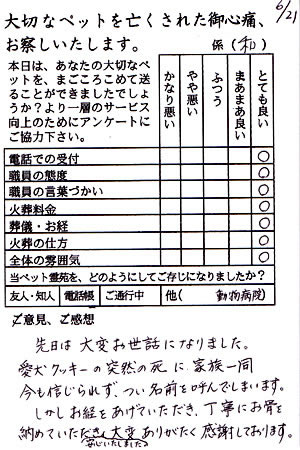 6/21
大切なペットを亡くされた御心痛、
お察しいたします。 係(和)
本日は、あなたの大切なペットを、まごころこめて送ることができましたでしょうか?より一層のサービス向上のためにアンケートにご協力下さい。
かなり悪い
やや悪い
ふつう
まあまあ良い
とても良い
電話での受付 ○
職員の態度 ○
職員の言葉づかい ○
火葬料金 ○
葬儀・お経 ○
火葬の仕方 ○
全体の雰囲気 ○
当ペット霊苑を、どのようにしてご存じになりましたか?
友人・知人 電話帳 ご通行中 他( 動物病院 )
ご意見、ご感想
先日は大変お世話になりました。
愛犬クッキーの突然の死に家族一同
今も信じられず、つい名前を呼んでしまいます。
しかしお経をあげていただき、丁寧にお骨を
納めていただき、大変ありがたく感謝しております。
安心いたしました